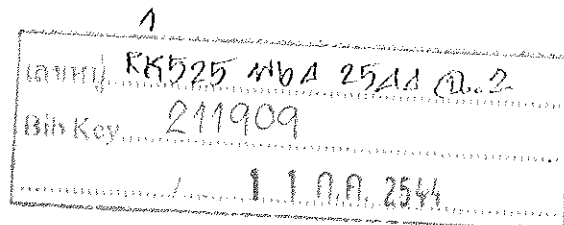 1
เลขหมู่ RK525 2544 ฉ.2
Bib Key 211909
/ 11 ก.ค. 2544